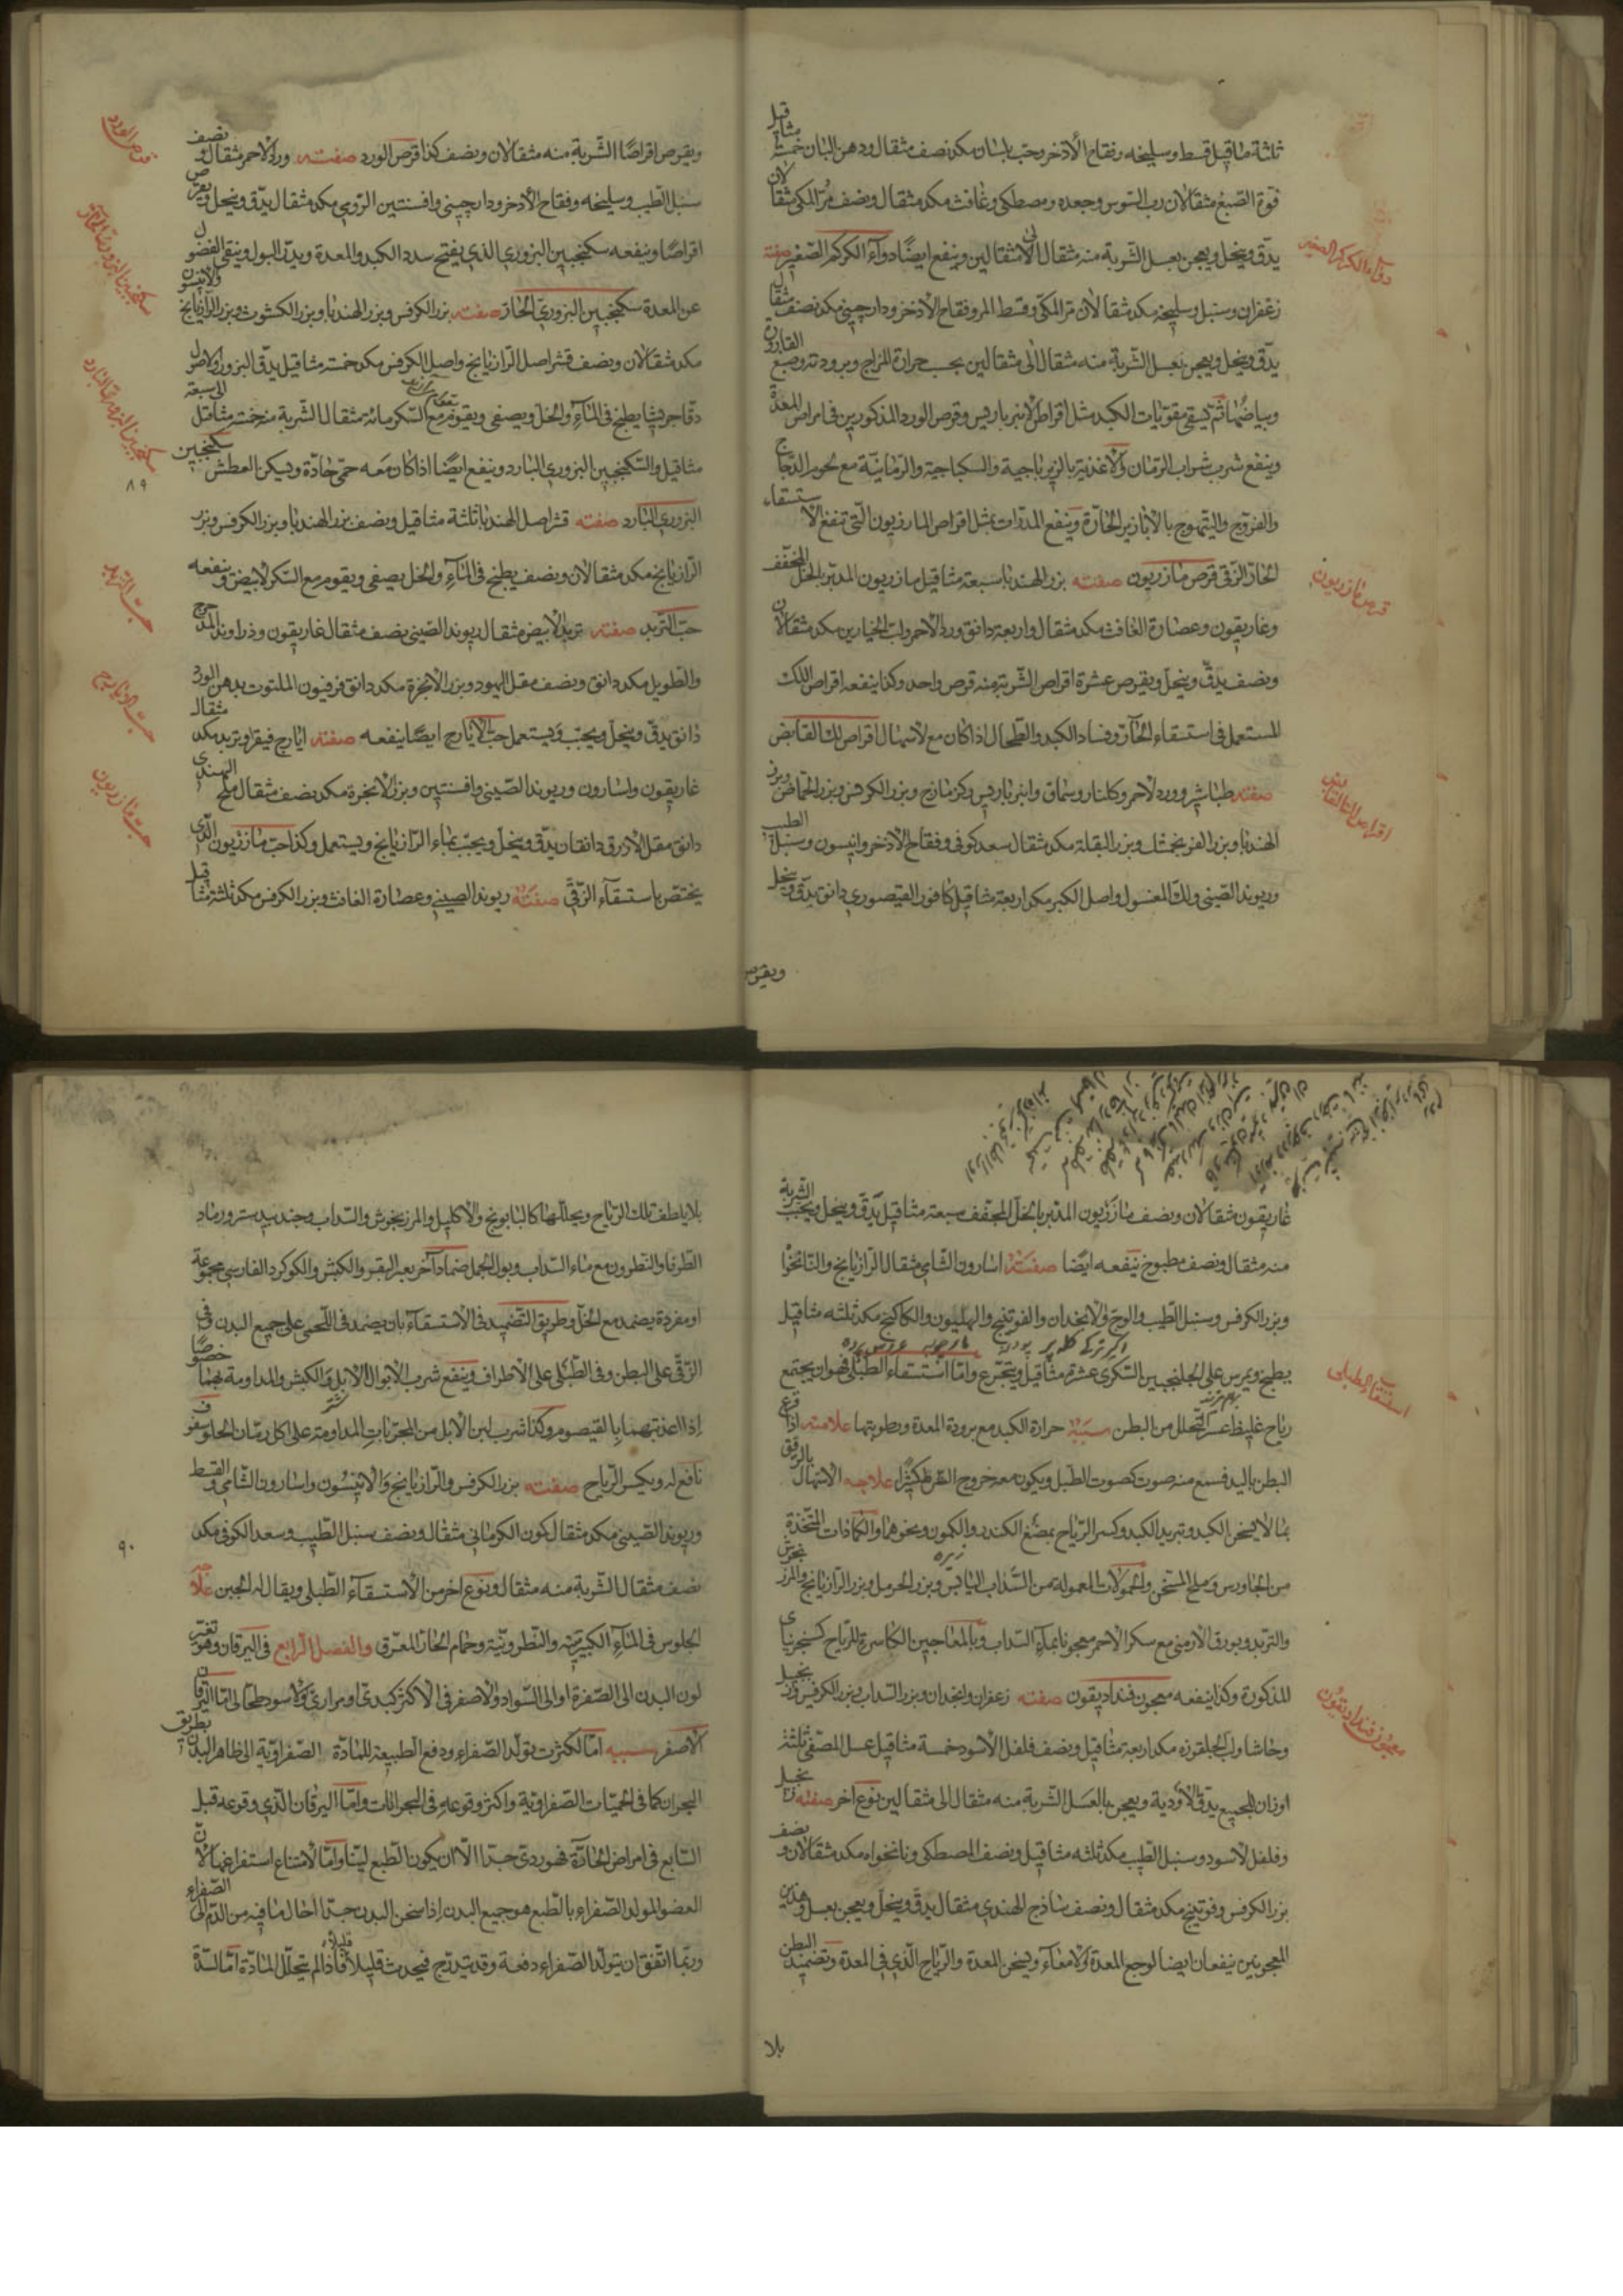 ثلثة مثاقيل قسط وسليخه وفقاح الأذخر وحب بلسان مكد نصف مثقال ودهن البان خمسة مثاقيل
فوة الصبغ مثقالان رب السوس وجعده ومصطكى وغافث مكد مثقال ونصف مر المكى مثقالان
يدق وينخل ويعجن بعسل الشربة منه مثقال الى مثقالين وينفع ايضًا دوآء الكركم الصغير صفته
زعفران وسنبل وسليخه مكد مثقالان مر المكى وقسط المر وفقاح الأذخر ودارچينى مكد نصف مثقال
يدق وينخل ويعجن بعسل الشربة منه مثقال الى مثقالين بحسب حرارة المزاج وبرودته ووضع القارورة
وبياضها ثم يسقى مقويات الكبد مثل اقراص الأنبرباريس وقرص الورد المذكورين فى امراض المعدة
وينفع شرب شراب الرمان والأغذية بالزيرباجية والسكباجية والرمانية مع لحوم الدجاج
والفروج والتيهوج بالأبازير الحارة وينفع المدرات بمثل اقراص المازريون التى تنفع الأستسقاء
الحار الزقى قرص مازريون صفته بزر الهندبا سبعة مثاقيل مازريون المدبر بالخل المجفف
وغاريقون وعصارة الغافث مكد مثقال واربعة دانق ورد الأحمر ولب الخيارين مكد مثقالان
ونصف يدق وينخل ويقرص عشرة اقراص الشربة منه قرص واحد وكذا ينفعه اقراص اللك
المستعمل فى استسقاء الحار وفساد الكبد والطحال اذا كان مع الأسهال اقراص لك القابض
صفته طباشير وورد الأحمر وكلنار وسماق وانبرباريس وكزمازج وبزر الكرفس وبزر الحماض وبزر
الهندبا وبزر الفرنجمشك وبزر البقلة مكد مثقال سعد كوفى وفقاح الأذخر وانيسون وسنبل الطيب
وريوند الصينى ولك المغسول واصل الكبر مكد اربعة مثاقيل كافور القيصورى دانق يدق وينخل
ويقرص
دوآء الكركم الصغير
قرص مازريون
اقراص لك القابض
ويقرص اقراصًا الشربة منه مثقالان ونصف كذا قرص الورد صفته ورد الأحمر مثقال ونصف
سنبل الطيب وسليخه وفقاح الأذخر ودارچينى وافسنتين الرومى مكد مثقال يدق وينخل ويقرص
اقراصًا وينفعه سكنجبين البزورى الذى يفتح سدد الكبد والمعدة ويدر البول وينقى الفضول
عن المعدة سكنجبين البزورى الحار صفته بزر الكرفس وبزر الهندبا وبزر الكشوث وبزر الرازيانج والأنيسون
مكد مثقالان ونصف قشر اصل الرازيانج واصل الكرفس مكد خمسة مثاقيل يدق البزور والأصول
دقا جريشا يطبخ فى المآء والخل ويصفى ويقوم مع السكر مائة مثقال الشربة من خمسة مثاقيل الى سبعة
مثاقيل والسكنجبين البزورى البارد وينفع ايضًا اذا كان معه حمى حادة ويسكن العطش سكنجبين
البزورى البارد صفته قشر اصل الهندبا ثلثة مثاقيل ونصف بزر الهندبا وبزر الكرفس وبزر
الرازيانج مكد مثقالان ونصف يطبخ فى المآء والخل يصفى ويقوم مع السكر الأبيض وينفعه
حب التربد صفته تربد الأبيض مثقال ريوند الصينى نصف مثقال غاريقون وذراوند المدحرج
والطويل مكد دانق ونصف مقل اليهود وبزر الأنجرة مكد دانق فرفيون الملتوت بدهن الورد
دانق يدق وينخل ويحبب ويستعمل حب الأيارج ايضًا ينفعه صفته ايارج فيقرا وتربد مكد مثقال
غاريقون واسارون وريوند الصينى وافسنتين وبزر الأنجرة مكد نصف مثقال ملح الهندى
دانق مقل الأزرق دانقان يدق وينخل ويحبب بماء الرازيانج ويستعمل وكذا حب مازريون الذى
يختص باستسقآء الزقى صفته ريوند الصينى وعصارة الغافث وبزر الكرفس مكد ثلثة مثاقيل
قرص الورد
سكنجبين البزورى البارد
٨٩
حب التربد
حب الايارج
حب مازريون
غاريقون مثقالان ونصف مازريون المدبر بالخل المجفف سبعة مثاقيل يدق وينخل ويحبب الشربة
منه مثقال ونصف مطبوخ ينفعه ايضا صفته اسارون الشامى مثقال الرازيانج والنانخوا
وبزر الكرفس وسنبل الطيب والوج والأنجدان والفوتنج والهليون والكاكنج مكد ثلثه مثاقيل
يطبخ ويمرس على الجلنجبين السكرى عشرة مثاقيل ويتجرع واما استسقاء الطبلى فهو ان يجتمع
رياح غليظ عسر التحلل من البطن سببه حرارة الكبد مع برودة المعدة ورطوبتها علامته اذا قرع
البطن باليد فسمع منه صوت كصوت الطبل ويكون معه خروج السره كثيرًا علاجه الأسهال بالرفق
بما لا يسخن الكبد وتبريد الكبد وكسر الرياح بمضغ الكندر والكمون ونحوهما والكمادات المتخذة
من الجاورس وملح المسخن والحمولات المعمولة من السداب اليابس وبزر الحرمل وبزر الرازيانج والمرزنجوش
والتربد وبورق الأرمنى مع سكر الأحمر معجونا بمآء السداب وبالمعاجين الكاسرة للرياح كسنجرنياى
المذكورة وكذا ينفعه معجون فنداديقون صفته زعفران وانجدان وبزر السداب وبزر الكرفس وزنجبيل
وحاشا ولب الجلقوزه مكد اربعة مثاقيل ونصف فلفل الأسود خمسة مثاقيل عسل المصفى ثلثة
اوزان الجميع يدق الأدوية ويعجن بالعسل الشربة منه مثقال الى مثقالين نوع آخر صفته زنجبيل
وفلفل الأسود وسنبل الطيب مكد ثلثه مثاقيل ونصف المصطكى ونانخواه مكد مثقالان ونصف
بزر الكرفس وفوتنج مكد مثقال ونصف ساذج الهندى مثقال يدق وينخل ويعجن بعسل وهذين
المعجونين ينفعان ايضا لوجع المعدة والأمعآء ويسخن المعدة والرياح الذى فى المعدة وتضميد البطن
بلا
استسقاء الطبلى
معجون فنداديقون
بلا يلطف تلك الرياح ويحللها كالبابونج والأكليل والمرزنجوش والسداب وجندبيدستر ورماد
الطرفا والنطرون مع ماء السداب وبول الجمل ضماد آخر بعر البقر والكبش والكوكرد الفارسى مجموعة
او مفردة يضمد مع الخل وطريق التضميد فى الأستسقآء بان يضمد فى اللحمى على جميع البدن وفى
الزقى على البطن وفى الطبلى على الأطراف وينفع شرب الأبوال الأبل والكبش والمداومة بهما خصوصًا
اذا اعذبتهما بالقيصوم وكذا شرب لبن الأبل من المجربات المداومة على اكل رمان الحلو سفوف
نافع له ويكسر الرياح صفته بزر الكرفس والرازيانج والأنيسون واسارون الشامى والقسط
وريوند الصينى مكد مثقال كمون الكرمانى مثقال ونصف سنبل الطيب وسعد الكوفى مكد
نصف مثقال الشربة منه مثقال ونوع اخر من الأستسقآء الطبلى ويقال له الجبن علاجه
الجلوس فى المآء الكبريتية والنطرونية وحمام الحار المعرق والفصل الرابع فى اليرقان وهو تغير
لون البدن الى الصفرة او الى السواد والأصفر فى الأكثر كبدى او مرارى والأسود طحالى اما اليرقان
الأصفر سببه اما لكثرت تولد الصفراء ودفع الطبيعة للمادة الصفراوية الى ظاهر البدن بطريق
البحران كما فى الحميات الصفراوية واكثر وقوعه فى البحرانات واما اليرقان الذى وقوعه قبل
السابع فى امراض الحارة فهو ردى جدا الا ان يكون الطبع لينا واما لأمتناع استفراغها لأن
العضو المولد الصفراء بالطبع هو جميع البدن اذا سخن البدن جدا احال ما فيه من الدم الى الصفراء
وربما اتفق ان يتولد الصفراء دفعة وقد يتدرج فيحدث قليلا قليلا فاذا لم يتحلل المادة اما لسدة
٩٠